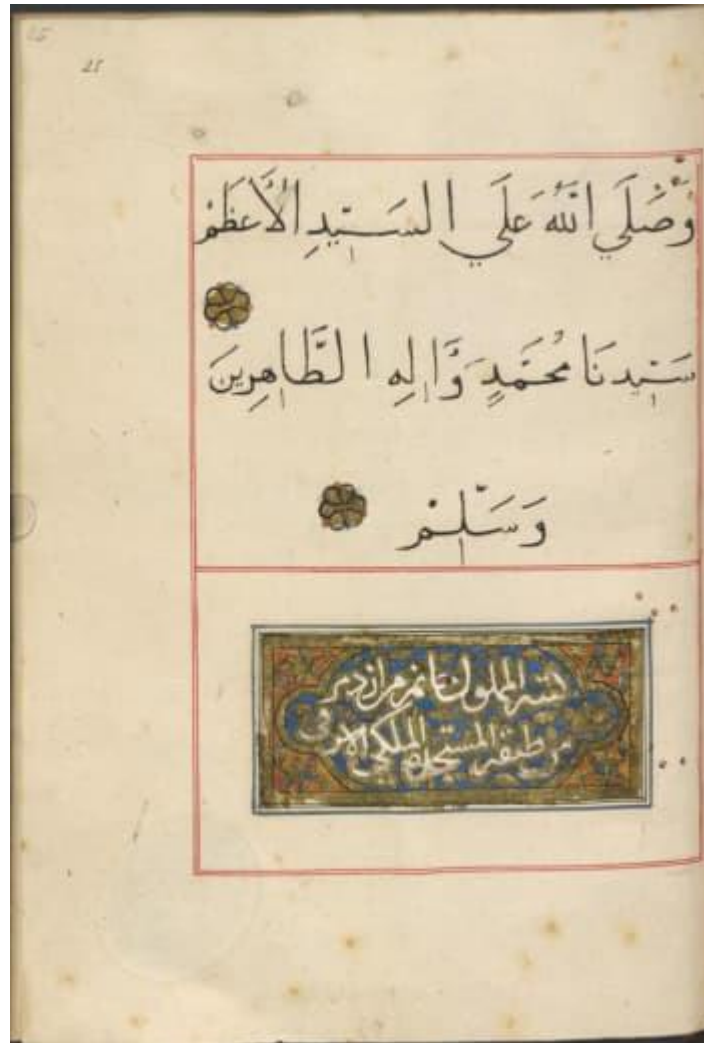 25
25
وَّصَلَي اللّه عَلَي السَيّدِ الأَعظَمْ
سَيّدنَا محَمَّدٍ وَّاٰلِهِ الطَّاهِرِينَ
وَسَلِّمْ
كتبه المملوك نمر من ازدمر
من طبقة المستجدة الملكي الاشرفي